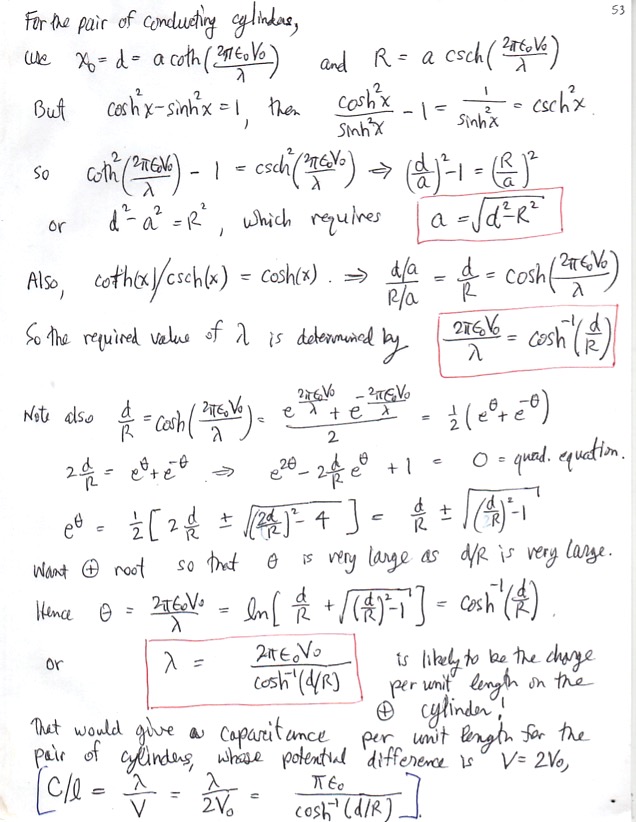 53
For the pair of conducting cylinders,
use x₀ = d = a coth(2πε₀V₀/λ) and R = a csch(2πε₀V₀/λ)
But cosh²x − sinh²x = 1, then cosh²x/sinh²x − 1 = 1/sinh²x = csch²x.
So coth²(2πε₀V₀/λ) − 1 = csch²(2πε₀V₀/λ) ⇒ (d/a)² − 1 = (R/a)²
or d² − a² = R², which requires a = √(d²−R²)
Also, coth(x)/csch(x) = cosh(x). ⇒ (d/a)/(R/a) = d/R = cosh(2πε₀V₀/λ)
So the required value of λ is determined by 2πε₀V₀/λ = cosh⁻¹(d/R)
Note also d/R = cosh(2πε₀V₀/λ) = (e^(2πε₀V₀/λ) + e^(−2πε₀V₀/λ))/2 = ½(e^θ + e^−θ)
2 d/R = e^θ + e^−θ ⇒ e^2θ − 2 d/R e^θ + 1 = 0 = quad. equation.
e^θ = ½[2 d/R ± √((2d/R)² − 4)] = d/R ± √((d/R)² − 1)
Want ⊕ root so that θ is very large as d/R is very large.
Hence θ = 2πε₀V₀/λ = ln[d/R + √((d/R)² − 1)] = cosh⁻¹(d/R).
or λ = 2πε₀V₀/cosh⁻¹(d/R) is likely to be the charge
per unit length on the
⊕ cylinder!
That would give a capacitance per unit length for the
pair of cylinders, whose potential difference is V = 2V₀,
[C/l = λ/V = λ/2V₀ = πε₀/cosh⁻¹(d/R)].